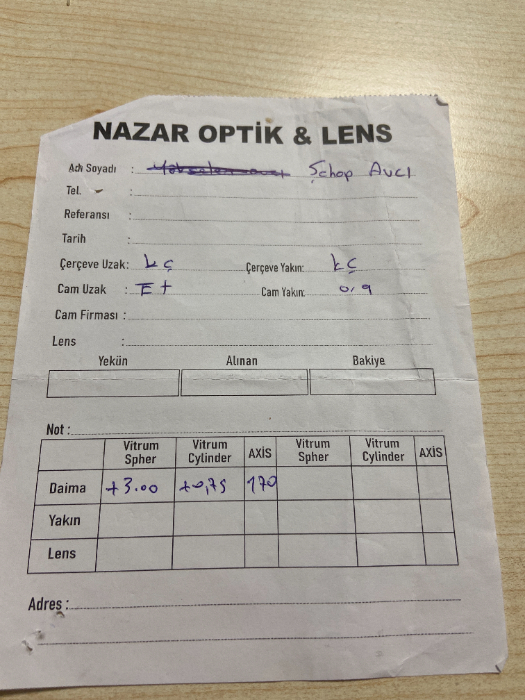 NAZAR OPTİK & LENS
Adı Soyadı : Şehop Avcı
Tel. :
Referansı :
Tarih :
Çerçeve Uzak: kç Çerçeve Yakın: kç
Cam Uzak : E+ Cam Yakın: 0,9
Cam Firması :
Lens :
Yekün Alınan Bakiye
Not :
Vitrum Spher Vitrum Cylinder AXİS Vitrum Spher Vitrum Cylinder AXİS
Daima +3.00 +0,75 170
Yakın
Lens
Adres :